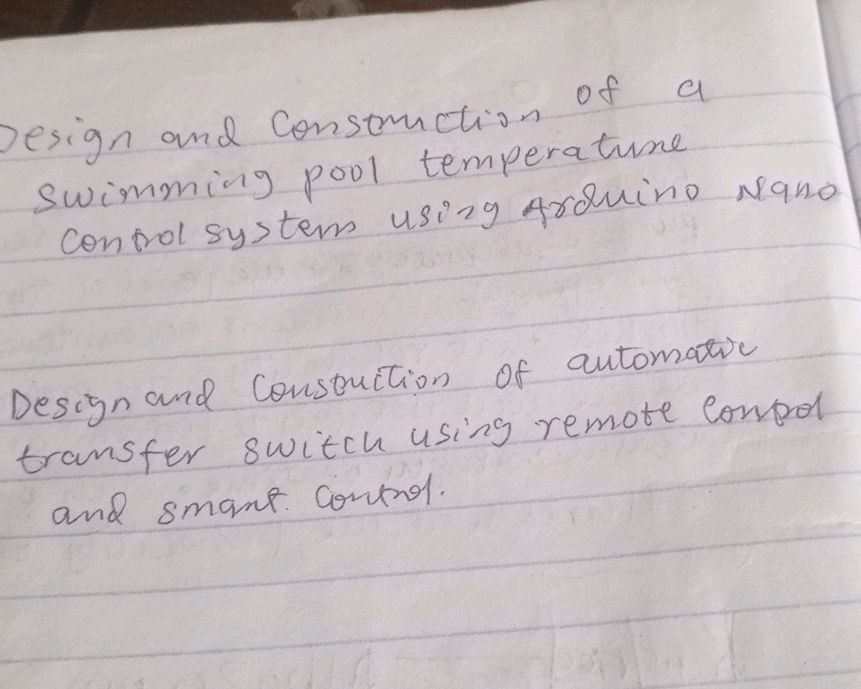 Design and Construction of a
swimming pool temperature
control system using Arduino Nano
Design and Construction of automatic
transfer switch using remote control
and smart control.